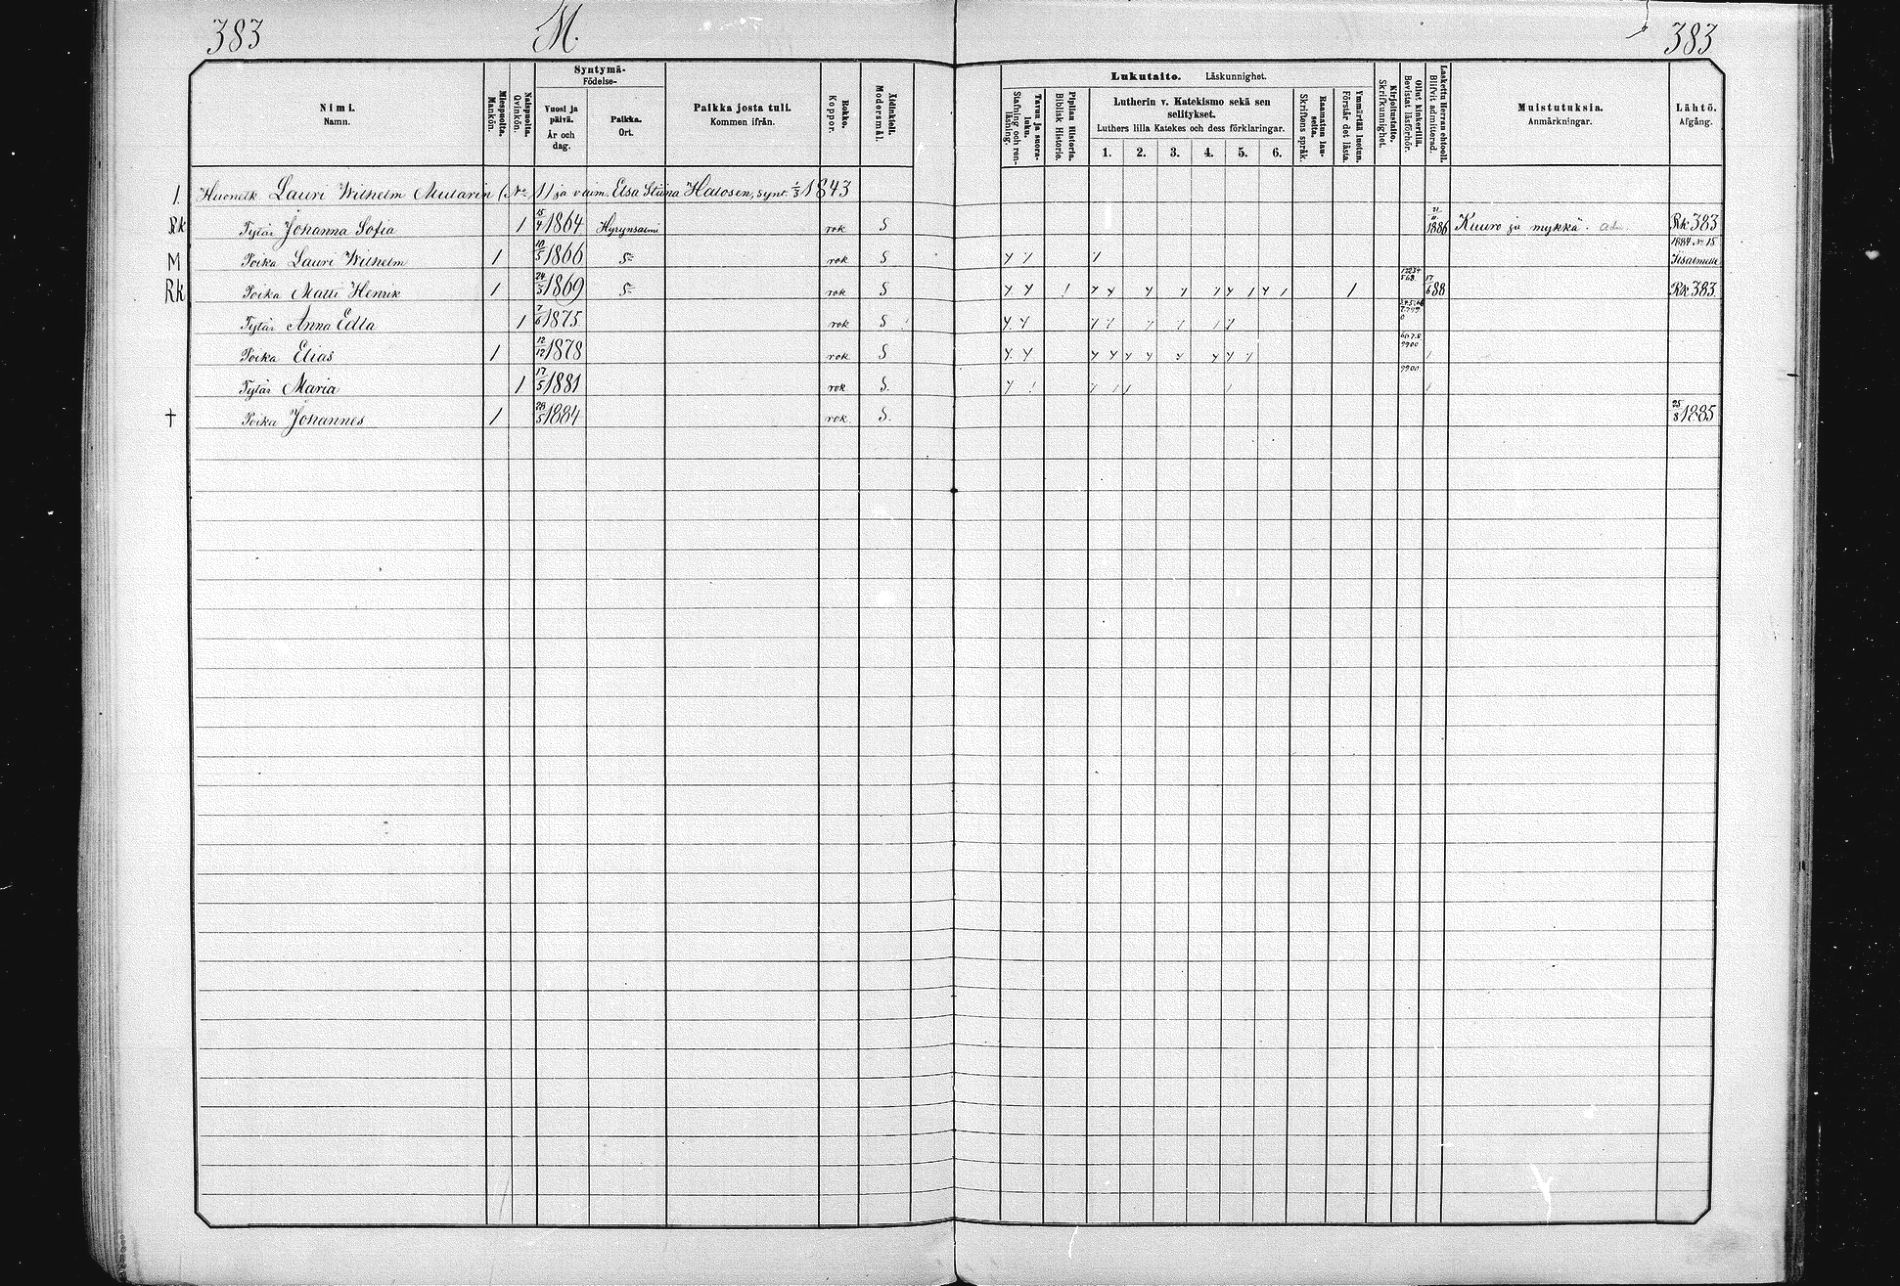 383 M. 383
Nimi. Namn.
Miespuolta. Mankön.
Naispuolta. Qvinkön.
Syntymä- Födelse-
Vuosi ja päivä. År och dag.
Paikka. Ort.
Paikka josta tuli. Kommen ifrån.
Rokko. Koppor.
Äidinkieli. Modersmål.
Lukutaito. Läskunnighet.
Tavuu ja suora- luku. Stafning och ren- läsning.
Piplian Historia. Biblisk Historia.
Lutherin v. Katekismo sekä sen selitykset.
Luthers lilla Katekes och dess förklaringar.
1. 2. 3. 4. 5. 6.
Raamatun lau- seita. Skriftens språk.
Ymmärtää luetun. Förstår det lästa.
Kirjoitustaito. Skrifkunnighet.
Ollut kinkerillä. Bevistat läsförhör.
Laskettu Herran ehtool. Blifvit admitterad.
Muistutuksia. Anmärkningar.
Lähtö. Afgång.
1. Lauri Wilhelm (No 1) ja vaim. Elsa Stiina Halosen, synt. 1/3 1843
Rk Tytär Johanna Sofia 1 15/4 1864 Hyrynsalmi rok S 1886 Kuuro ja mykkä. Rk 383
M Poika Lauri Wilhelm 1 10/5 1866 S:a rok S 1884 No 15 Iisalmelle
Rk Poika Matti Henrik 1 24/3 1869 S:a rok S 17/6 88 Rk 383.
Tytär Anna Edla 1 7/6 1875 rok S
Poika Elias 1 12/12 1878 rok S
Tytär Maria 1 17/5 1881 rok S.
† Poika Johannes 1 28/5 1884 rok. S. 25/8 1885